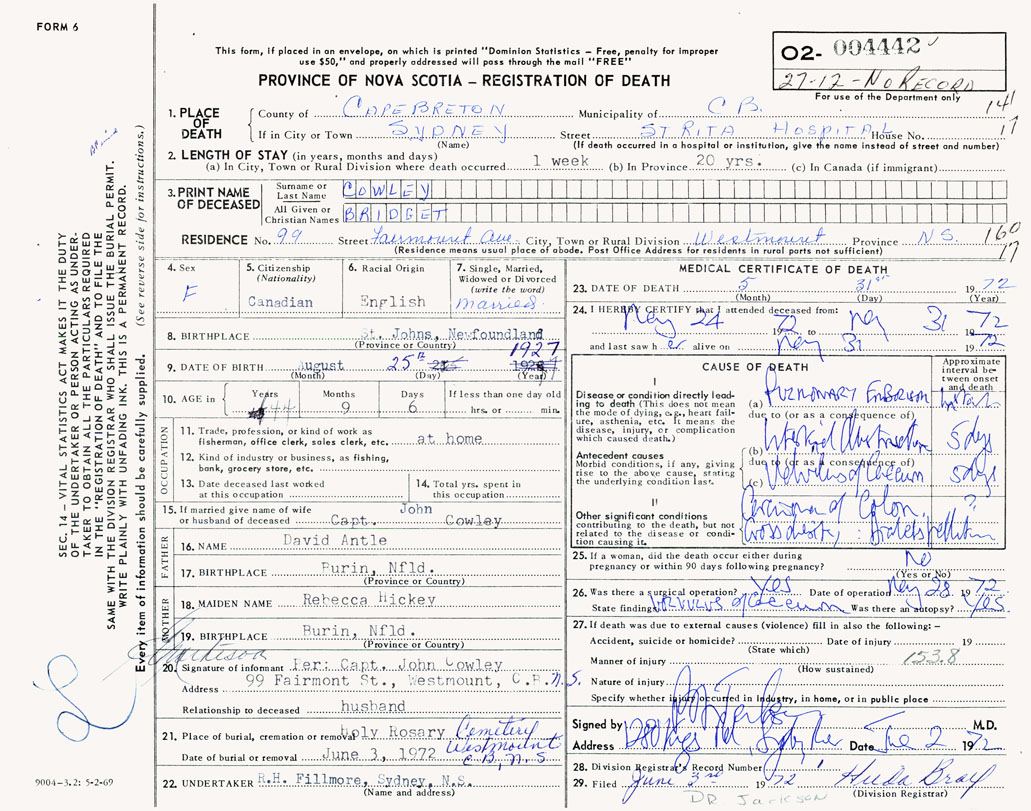 FORM 6
This form, if placed in an envelope, on which is printed "Dominion Statistics – Free, penalty for improper
use $50," and properly addressed will pass through the mail "FREE"
PROVINCE OF NOVA SCOTIA – REGISTRATION OF DEATH
O2- 004442
27-12-NO RECORD
For use of the Department only
141
17
1. PLACE OF DEATH
County of CAPE BRETON Municipality of C B.
If in City or Town SYDNEY Street ST RITA HOSPITAL House No.
(Name) (If death occurred in a hospital or institution, give the name instead of street and number)
2. LENGTH OF STAY (in years, months and days)
(a) In City, Town or Rural Division where death occurred 1 week (b) In Province 20 yrs. (c) In Canada (if immigrant)
3. PRINT NAME OF DECEASED
Surname or Last Name COWLEY
All Given or Christian Names BRIDGET
RESIDENCE No. 99 Street Fairmount Ave. City, Town or Rural Division Westmount Province N.S.
(Residence means usual place of abode. Post Office Address for residents in rural ports not sufficient)
160
17
4. Sex F
5. Citizenship (Nationality) Canadian
6. Racial Origin English
7. Single, Married, Widowed or Divorced (write the word) Married.
8. BIRTHPLACE St. Johns, Newfoundland
(Province or Country)
9. DATE OF BIRTH August 25th 1927
(Month) (Day) (Year)
10. AGE in Years 44 Months 9 Days 6 If less than one day old hrs. or min.
OCCUPATION
11. Trade, profession, or kind of work as fisherman, office clerk, sales clerk, etc. at home
12. Kind of industry or business, as fishing, bank, grocery store, etc.
13. Date deceased last worked at this occupation
14. Total yrs. spent in this occupation
15. If married give name of wife or husband of deceased Capt. John Cowley
FATHER
16. NAME David Antle
17. BIRTHPLACE Burin, Nfld.
(Province or Country)
MOTHER
18. MAIDEN NAME Rebecca Hickey
19. BIRTHPLACE Burin, Nfld.
(Province or Country)
20. Signature of informant Per: Capt. John Cowley
Address 99 Fairmont St., Westmount, C.B. N.S.
Relationship to deceased husband
21. Place of burial, cremation or removal Holy Rosary Cemetery
Westmount
C.B., N.S.
Date of burial or removal June 3, 1972
22. UNDERTAKER R.H. Fillmore, Sydney, N.S.
(Name and address)
MEDICAL CERTIFICATE OF DEATH
23. DATE OF DEATH 5 31st 1972
(Month) (Day) (Year)
24. I HEREBY CERTIFY that I attended deceased from:
May 24 1972 to May 31 1972
and last saw her alive on May 31 1972
CAUSE OF DEATH
Approximate interval between onset and death
I
Disease or condition directly leading to death (This does not mean the mode of dying, e.g., heart failure, asthenia, etc. It means the disease, injury, or complication which caused death.)
(a) PULMONARY EMBOLISM
due to (or as a consequence of)
Antecedent causes
Morbid conditions, if any, giving rise to the above cause, stating the underlying condition last.
(b) Intestinal Obstruction 5 days
due to (or as a consequence of)
(c) Volvulus of Caecum 5 days
II
Other significant conditions contributing to the death, but not related to the disease or condition causing it.
Carcinoma of Colon ?
Gross obesity;
25. If a woman, did the death occur either during pregnancy or within 90 days following pregnancy? No
(Yes or No)
26. Was there a surgical operation? Yes Date of operation May 28 1972
State findings VOLVULUS of Caecum Was there an autopsy? Yes.
27. If death was due to external causes (violence) fill in also the following: –
Accident, suicide or homicide? Date of injury 19
(State which)
Manner of injury 153.8
(How sustained)
Nature of injury
Specify whether injury occurred in industry, in home, or in public place
Signed by M.D.
Address Date June 2 1972
28. Division Registrar's Record Number
29. Filed June 3rd 1972 Hilda Bray
(Division Registrar)
DR. Jackson
SEC. 14 – VITAL STATISTICS ACT MAKES IT THE DUTY
OF THE UNDERTAKER OR PERSON ACTING AS UNDER-
TAKER TO OBTAIN ALL THE PARTICULARS REQUIRED
IN THE "REGISTRATION OF DEATH" AND TO FILE THE
SAME WITH THE DIVISION REGISTRAR WHO SHALL ISSUE THE BURIAL PERMIT.
WRITE PLAINLY WITH UNFADING INK. THIS IS A PERMANENT RECORD.
Every item of information should be carefully supplied. (See reverse side for instructions.)
9004-3.2: 5-2-69